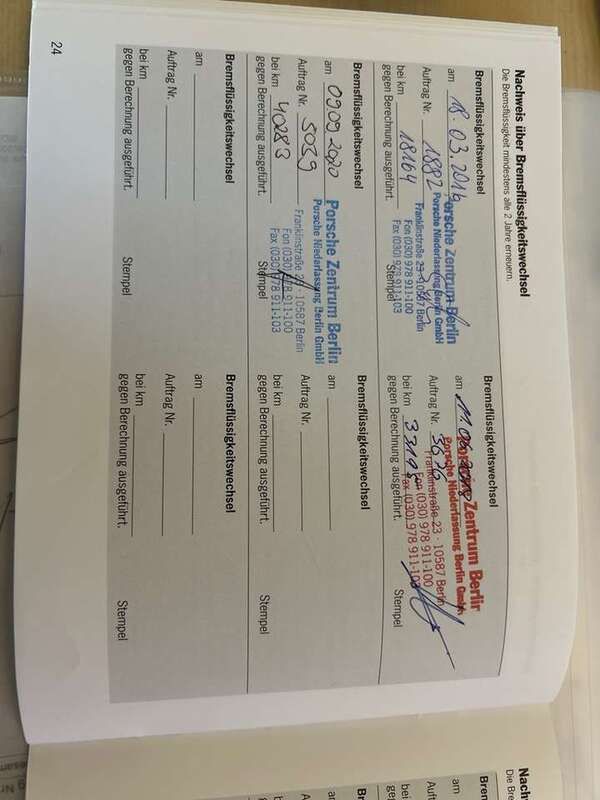 Nachweis über Bremsflüssigkeitswechsel
Die Bremsflüssigkeit mindestens alle 2 Jahre erneuern.
Bremsflüssigkeitswechsel
am 18.03.2016
Auftrag Nr. 1882
bei km 18164
gegen Berechnung ausgeführt.
Stempel
Porsche Zentrum Berlin
Porsche Niederlassung Berlin GmbH
Franklinstraße 23 · 10587 Berlin
Fon (030) 978 911-100
Fax (030) 978 911-103
Bremsflüssigkeitswechsel
am
Auftrag Nr.
bei km
gegen Berechnung ausgeführt.
Stempel
Zentrum Berlin
Porsche Niederlassung Berlin GmbH
Franklinstraße 23 · 10587 Berlin
Fon (030) 978 911-100
Fax (030) 978 911-103
Bremsflüssigkeitswechsel
am 09.09.2020
Auftrag Nr. 5059
bei km 40283
gegen Berechnung ausgeführt.
Stempel
Porsche Zentrum Berlin
Porsche Niederlassung Berlin GmbH
Franklinstraße 23 · 10587 Berlin
Fon (030) 978 911-100
Fax (030) 978 911-103
Bremsflüssigkeitswechsel
am
Auftrag Nr.
bei km
gegen Berechnung ausgeführt.
Stempel
Bremsflüssigkeitswechsel
am
Auftrag Nr.
bei km
gegen Berechnung ausgeführt.
Stempel
Bremsflüssigkeitswechsel
am
Auftrag Nr.
bei km
gegen Berechnung ausgeführt.
Stempel
24
Nach
Die Bre
Brem
am
Auftrag
bei km
gegen B
Brems
am
Auftrag
bei km
gegen B